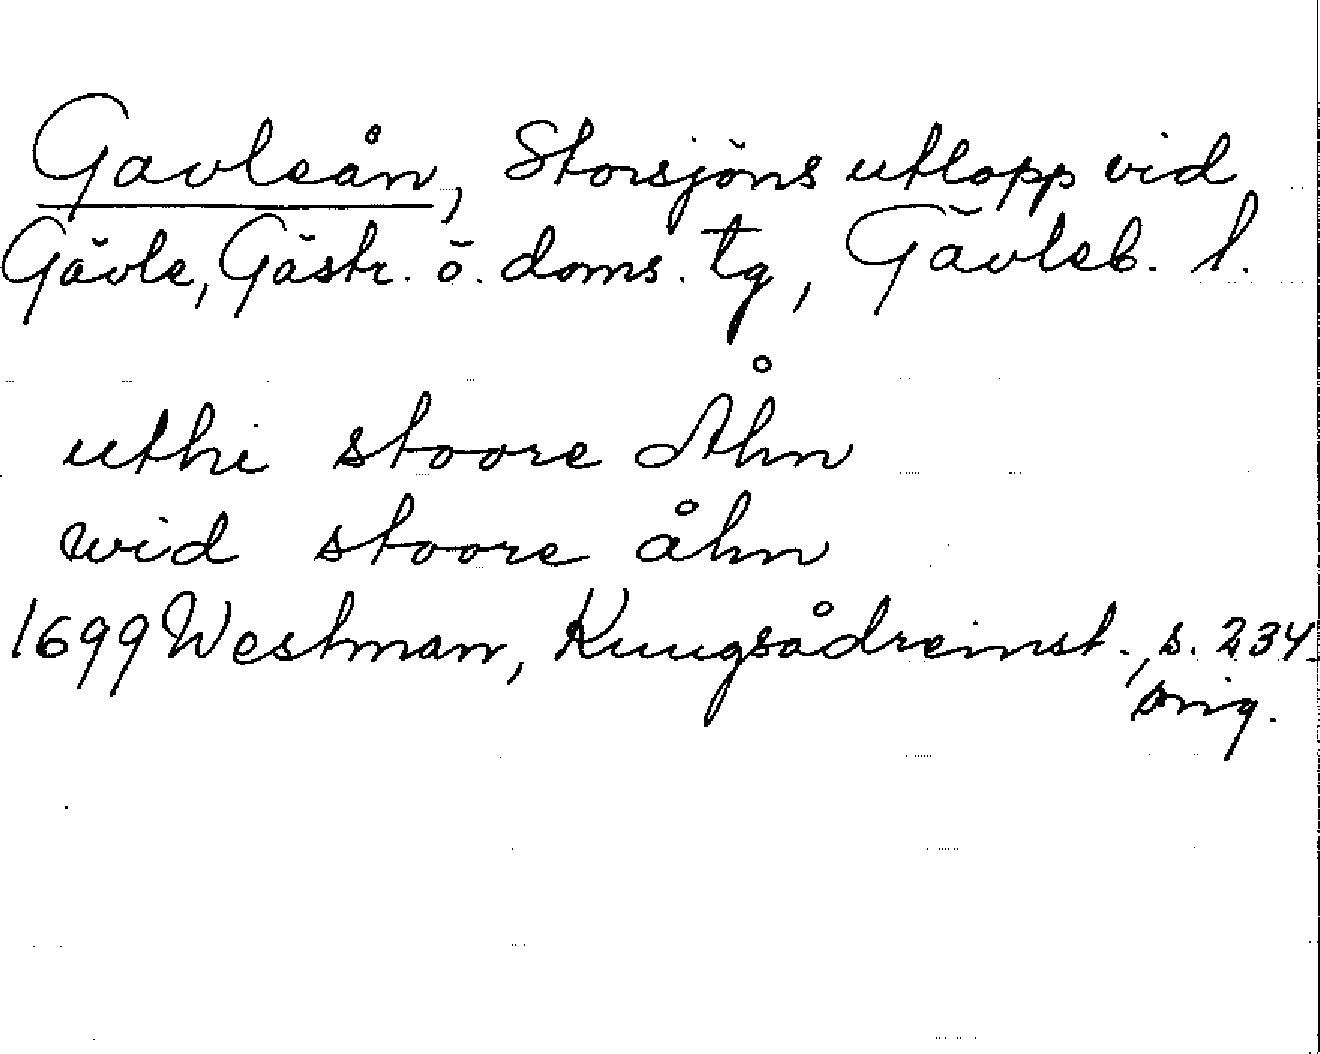 Gavleån, Storsjöns utlopp vid
Gävle, Gästr. ö. doms. tg, Gävleb. l.
uthi stoore Åhn
wid stoore åhn
1699 Westman, Kungsådreinst., s. 234
orig.